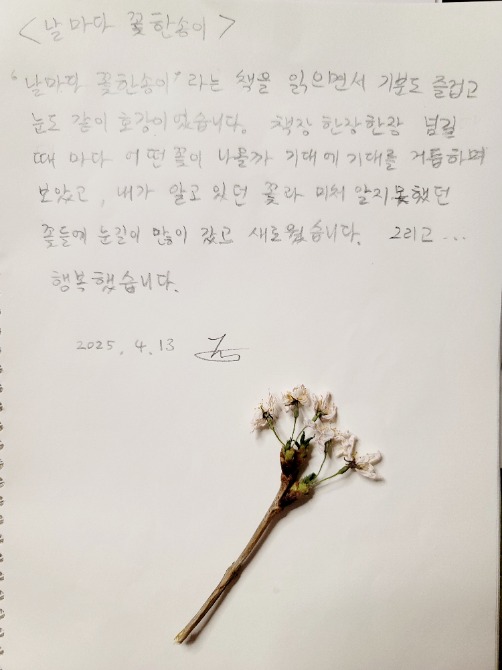 <날마다 꽃한송이>
"날마다 꽃한송이"라는 책을 읽으면서 기분도 즐겁고
눈도 같이 호강이었습니다. 책장 한장한장 넘길
때 마다 어떤꽃이 나올까 기대에 기대를 거듭하며
보았고, 내가 알고 있던 꽃과 미처 알지못했던
꽃들에 눈길이 많이 갔고 새로웠습니다. 그리고...
행복했습니다.
2025. 4. 13